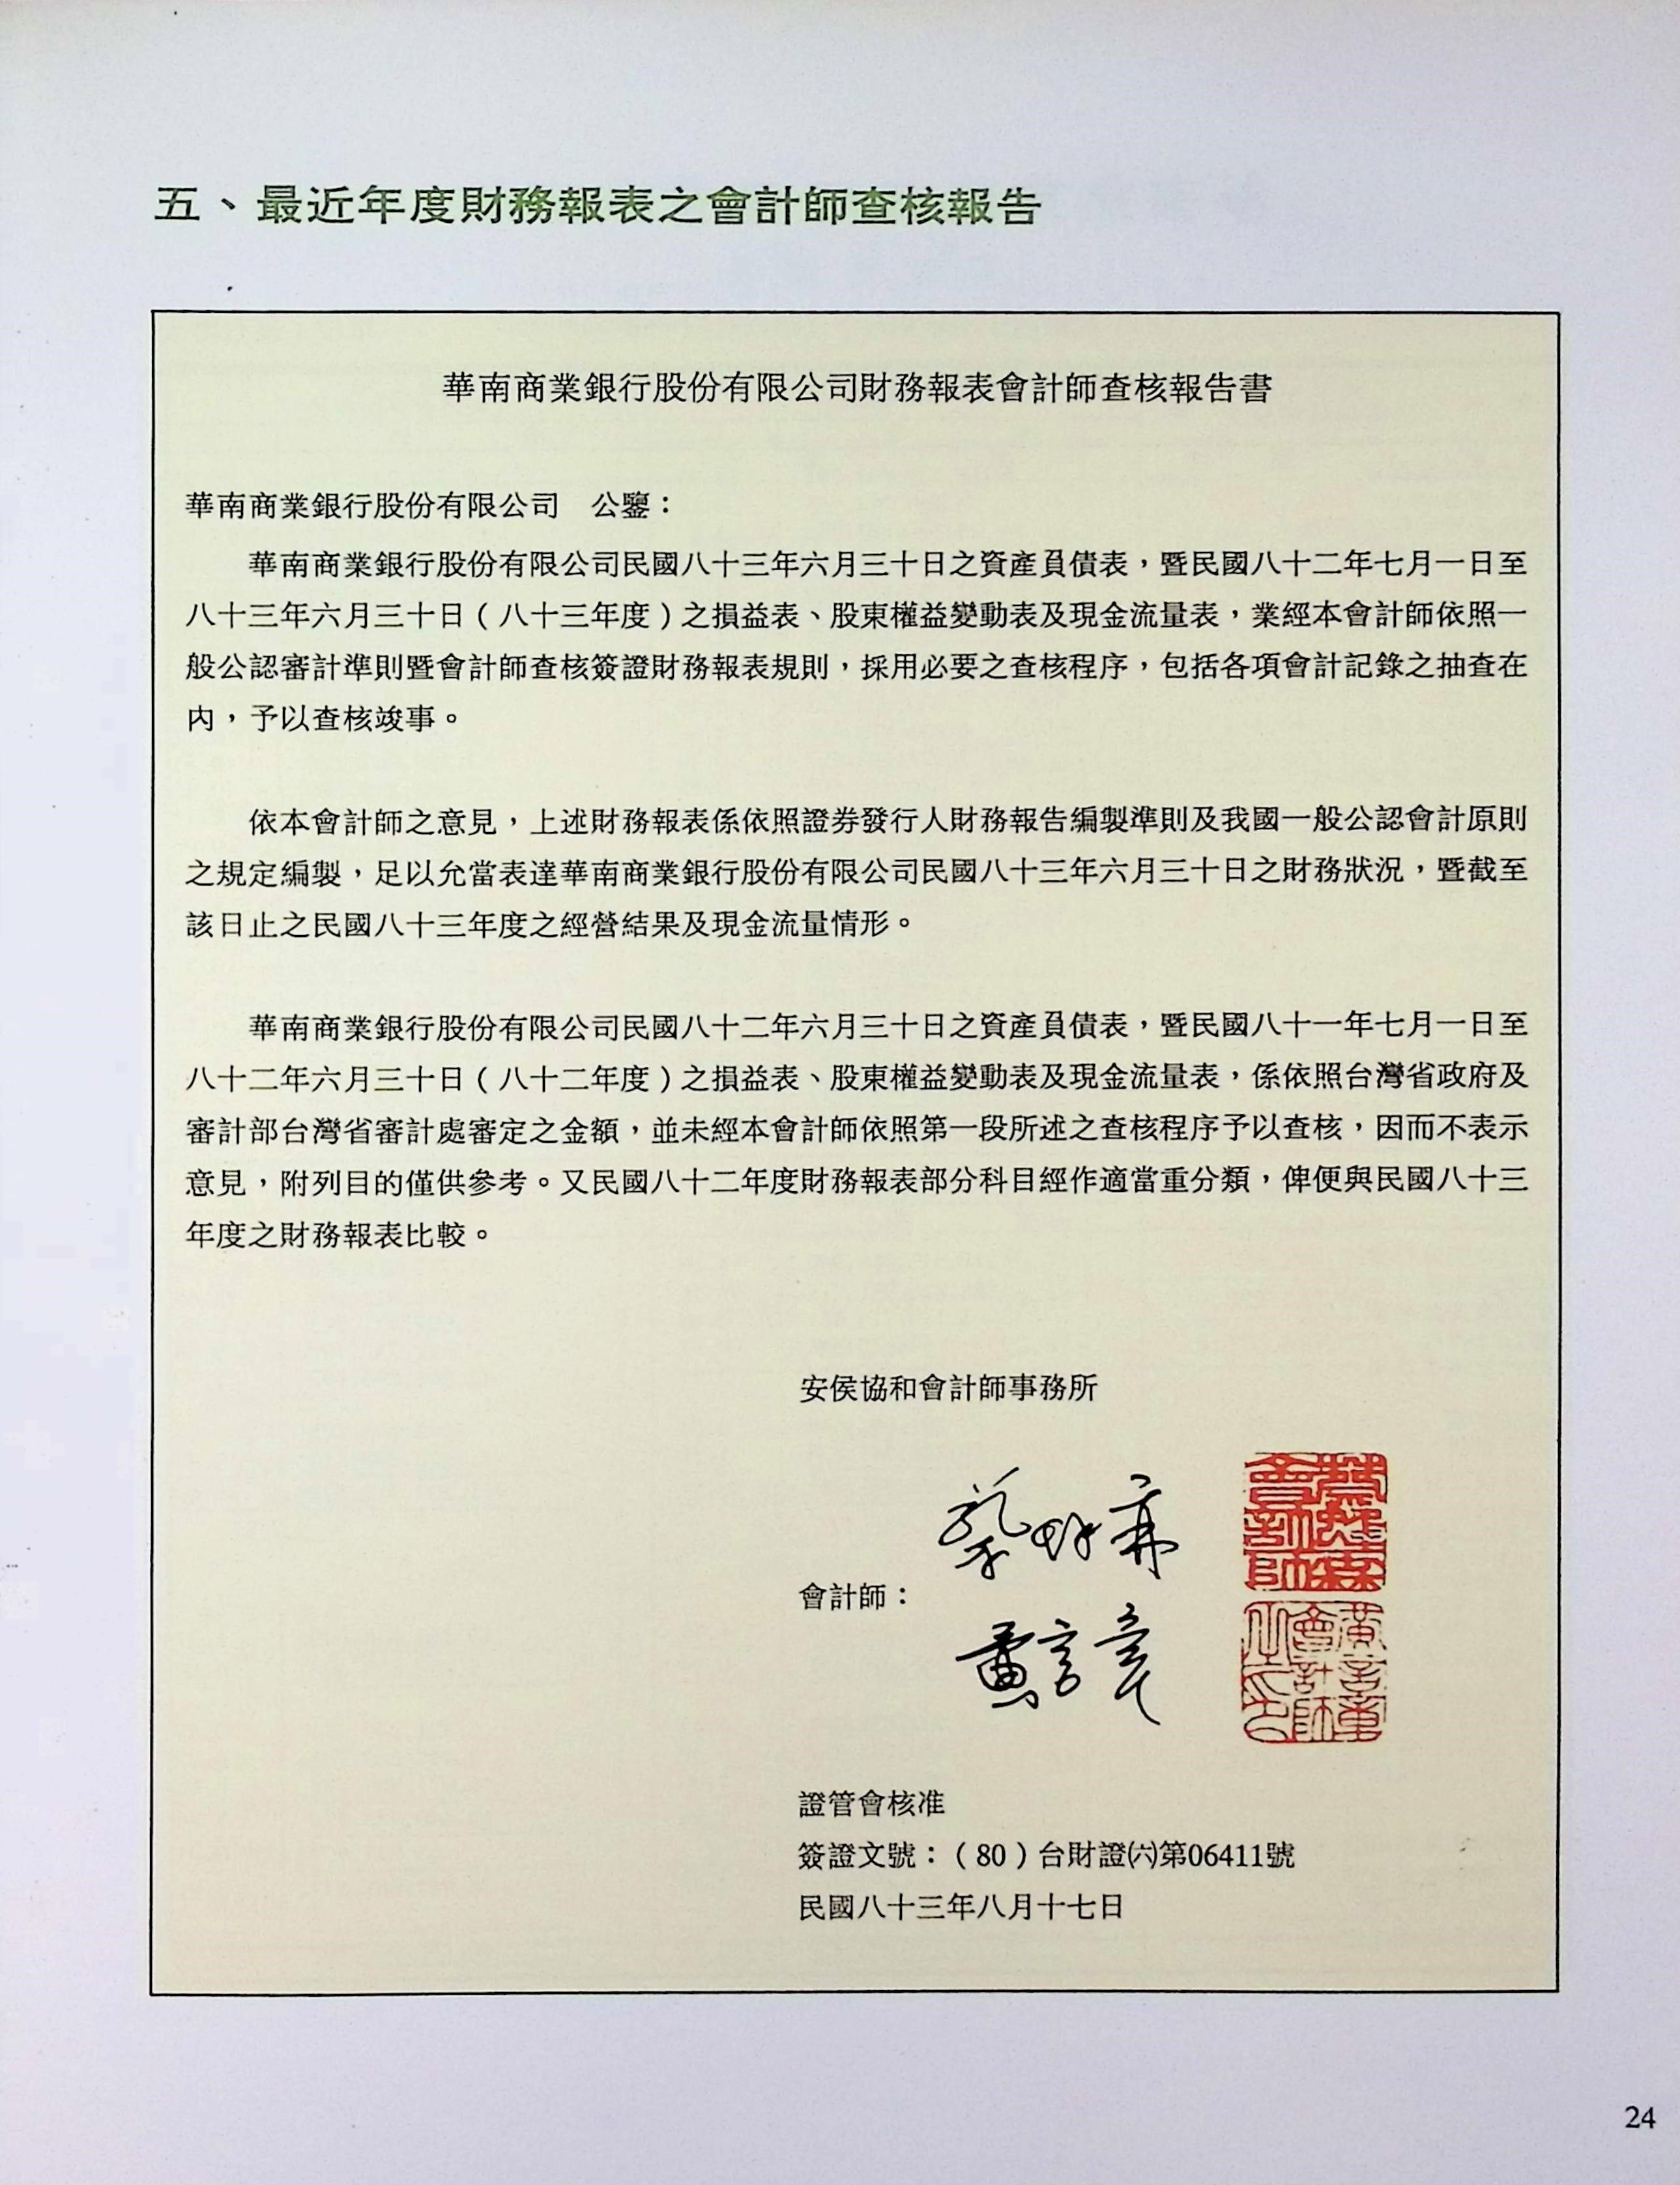 五、最近年度財務報表之會計師查核報告
華南商業銀行股份有限公司財務報表會計師查核報告書
華南商業銀行股份有限公司　公鑒：
華南商業銀行股份有限公司民國八十三年六月三十日之資產負債表，暨民國八十二年七月一日至
八十三年六月三十日（八十三年度）之損益表、股東權益變動表及現金流量表，業經本會計師依照一
般公認審計準則暨會計師查核簽證財務報表規則，採用必要之查核程序，包括各項會計記錄之抽查在
內，予以查核竣事。
依本會計師之意見，上述財務報表係依照證券發行人財務報告編製準則及我國一般公認會計原則
之規定編製，足以允當表達華南商業銀行股份有限公司民國八十三年六月三十日之財務狀況，暨截至
該日止之民國八十三年度之經營結果及現金流量情形。
華南商業銀行股份有限公司民國八十二年六月三十日之資產負債表，暨民國八十一年七月一日至
八十二年六月三十日（八十二年度）之損益表、股東權益變動表及現金流量表，係依照台灣省政府及
審計部台灣省審計處審定之金額，並未經本會計師依照第一段所述之查核程序予以查核，因而不表示
意見，附列目的僅供參考。又民國八十二年度財務報表部分科目經作適當重分類，俾便與民國八十三
年度之財務報表比較。
安侯協和會計師事務所
會計師：
黃言章
會計師
黃言章會計師之印
證管會核准
簽證文號：（80）台財證㈥第06411號
民國八十三年八月十七日
24